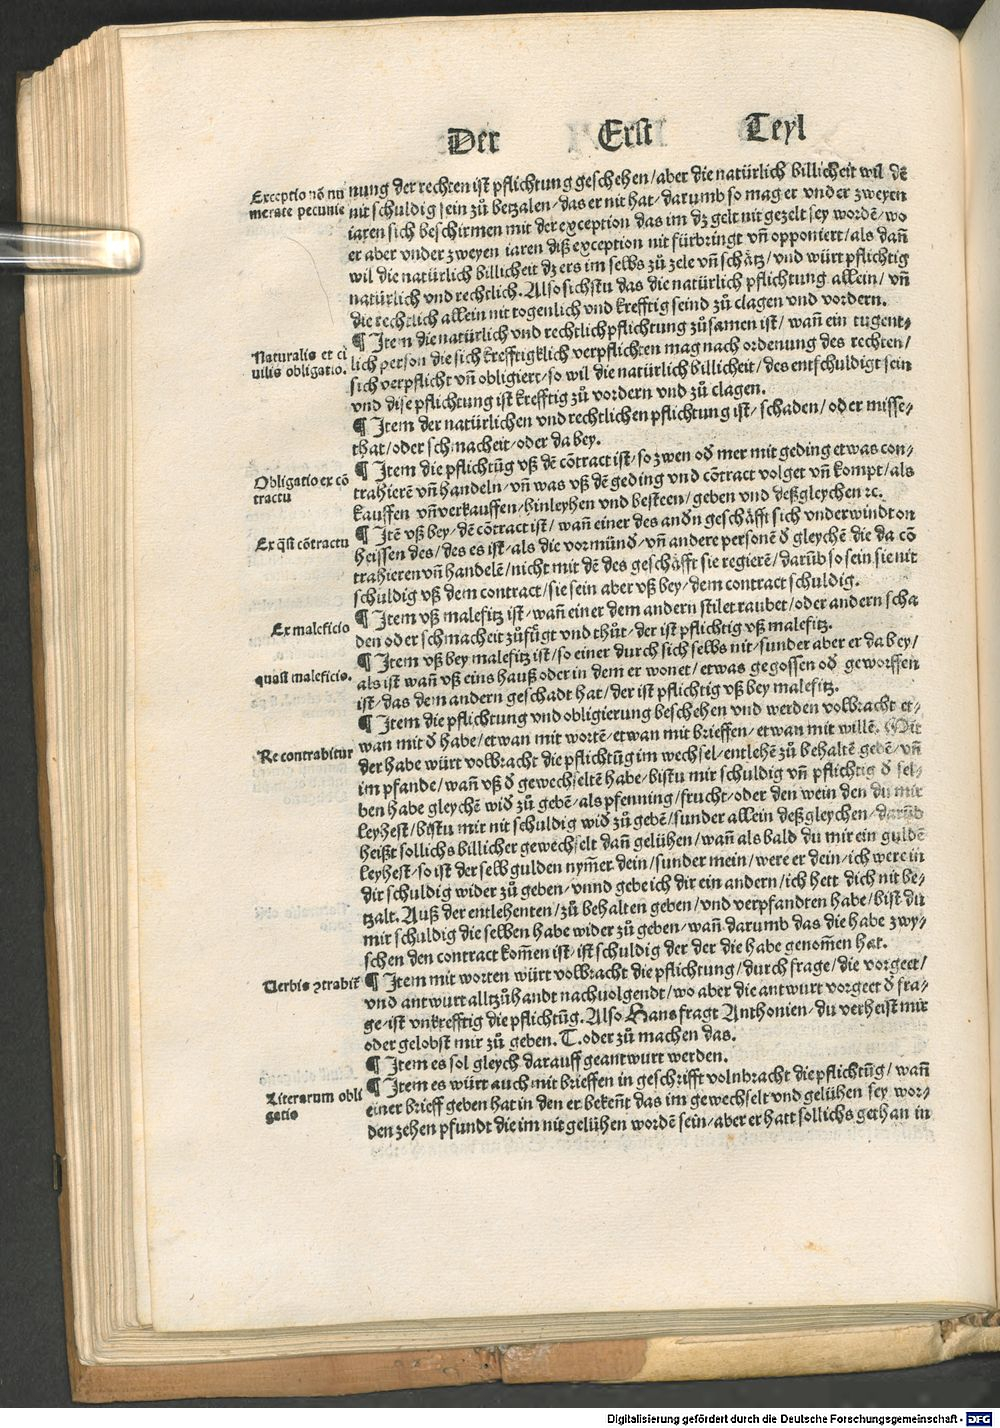 Der Erst Teyl
Exceptio nõ nu
merate pecunie
nung der rechten ist pflichtung geschehen/aber die natürlich billicheit wil dẽ
nit schuldig sein zů betzalen/das er nit hat/darumb so mag er vnder zweyen
iaren sich beschirmen mit der exception das im dz gelt nit gezelt sey wordẽ/wo
er aber vnder zweyen iaren diß exception nit fürbringt vñ opponiert/als dañ
wil die natürlich billicheit dz ers im selbs zů zele vñ schätz/vnd würt pflichtig
natürlich vnd rechtlich. Also sichstu das die natürlich pflichtung allein/vñ
die rechtlich allein nit togenlich vnd krefftig seind zů clagen vnd vordern.
Naturalis et ci
uilis obligatio.
¶ Item die natürlich vnd rechtlich pflichtung zůsamen ist/wañ ein tugent⸗
lich person die sich krefftigklich verpflichten mag nach ordenung des rechten/
sich verpflicht vñ obligiert/so wil die natürlich billicheit/des entschuldigt sein
vnd dise pflichtung ist krefftig zů vordern vnd zů clagen.
¶ Item der natürlichen vnd rechtlichen pflichtung ist/schaden/oder misse⸗
that/oder schmacheit/oder da bey.
Obligatio ex cõ
tractu
¶ Item die pflichtũg vß dẽ cõtract ist/so zwen oď mer mit geding etwas con⸗
trahierẽ vñ handeln/vñ was vß dẽ geding vnd cõtract volget vñ kompt/als
kauffen vñ verkauffen/hinleyhen vnd besteen/geben vnd deßgleychen ꝛc.
Ex q̃si cõtractu
¶ Itẽ vß bey/dẽ cõtract ist/wañ einer des andň geschäfft sich vnderwindt on
heissen des/des es ist/als die vormünď/vñ andere personẽ ď gleychẽ die da cõ
trahieren vñ handelẽ/nicht mit dẽ des geschäfft sie regierẽ/darũb so sein sie nit
schuldig vß dem contract/sie sein aber vß bey/dem contract schuldig.
Ex maleficio
¶ Item vß malefitz ist/wañ einer dem andern stilet raubet/oder andern scha
den oder schmacheit zůfügt vnd thůt/der ist pflichtig vß malefitz.
quasi maleficio.
¶ Item vß bey malefitz ist/so einer durch sich selbs nit/sunder aber er da bey/
als ist wañ vß eins hauß oder in dem er wonet/etwas gegossen oď geworffen
ist/das dem andern geschadt hat/der ist pflichtig vß bey malefitz.
¶ Item die pflichtung vnd obligierung beschehen vnd werden volbracht et⸗
wan mit ď habe/etwan mit wortẽ/etwan mit brieffen/etwan mit willẽ. Mit
Re contrahitur
der habe würt volbracht die pflichtũg im wechsel/entlehẽ zů behaltẽ gebẽ/vñ
im pfande/wañ vß ď gewechseltẽ habe/bistu mir schuldig vñ pflichtig ď sel⸗
ben habe gleychẽ wiď zů gebẽ/als pfenning/frucht/oder den wein den du mir
leyhest/bistu mir nit schuldig wiď zů gebẽ/sunder allein deßgleychen/darũb
heißt sollichs billicher gewechselt dañ gelühen/wañ als bald du mir ein guldẽ
leyhest/so ist der selb gulden nym̃er dein/sunder mein/were er dein/ich were in
dir schuldig wider zů geben/vnnd gebe ich dir ein andern/ich hett dich nit be⸗
tzalt. Auß der entlehenten/zů behalten geben/vnd verpfandten habe/bist du
mir schuldig die selben habe wider zů geben/wañ darumb das die habe zwy⸗
schen den contract kom̃en ist/ist schuldig der der die habe genom̃en hat.
Verbis ꝯtrahit᷑
¶ Item mit worten würt volbracht die pflichtung/durch frage/die vorgeet/
vnd antwurt alltzůhandt nachuolgendt/wo aber die antwurt vorgeet ď fra⸗
ge/ist vnkrefftig die pflichtũg. Also Hans fragt Anthonien/du verheist mir
oder gelobst mir zů geben. T. oder zů machen das.
¶ Item es sol gleych darauff geantwurt werden.
Literarum obli
gatio
¶ Item es würt auch mit brieffen in geschrifft volnbracht die pflichtũg/wañ
einer brieff geben hat in den er bekeñt das im gewechselt vnd gelühen sey wor⸗
den zehen pfundt die im nit gelühen wordẽ sein/aber er hatt sollichs gethan in
Digitalisierung gefördert durch die Deutsche Forschungsgemeinschaft - DFG